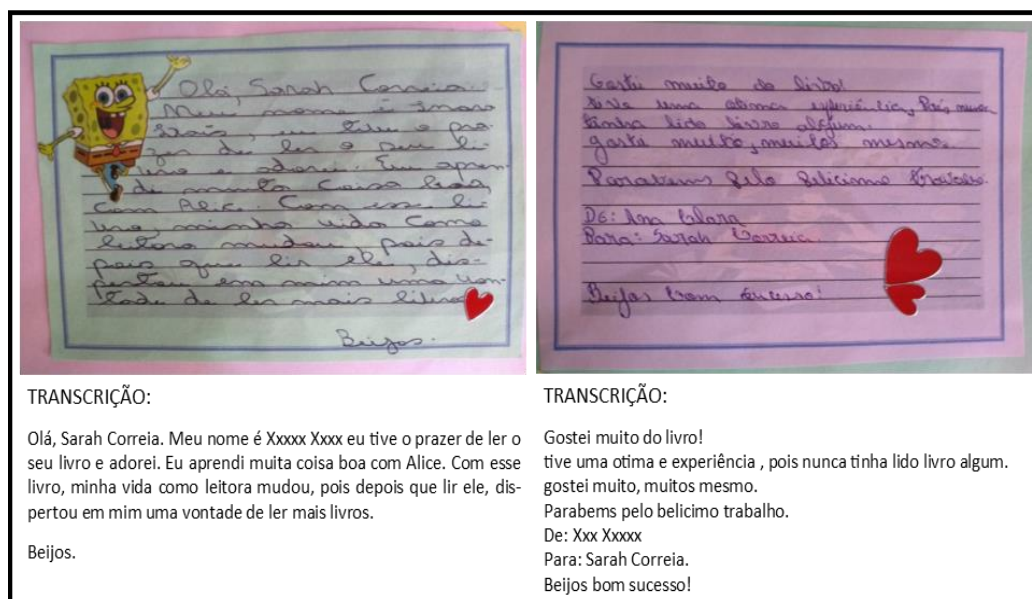 Olá, Sarah Correia.
Meu nome é
eu tive o pra
zer de ler o seu li-
vro e adorei. Eu apren-
di muita coisa boa,
com Alice. Com esse li
vro, minha vida como
leitora mudou, pois de-
pois que lir ele, dis-
pertou em mim uma von-
tade de ler mais livros
Beijos.
TRANSCRIÇÃO:
Olá, Sarah Correia. Meu nome é Xxxxx Xxxx eu tive o prazer de ler o
seu livro e adorei. Eu aprendi muita coisa boa com Alice. Com esse
livro, minha vida como leitora mudou, pois depois que lir ele, dis-
pertou em mim uma vontade de ler mais livros.
Beijos.
Gostei muito do livro!
tive uma otima experiência, Pois nunca
tinha lido livro algum.
gostei muito, muitos mesmo.
Parabems pelo belicimo trabalho.
De: Ana Clara
Para: Sarah Correia
Beijos bom sucesso!
TRANSCRIÇÃO:
Gostei muito do livro!
tive uma otima e experiência , pois nunca tinha lido livro algum.
gostei muito, muitos mesmo.
Parabems pelo belicimo trabalho.
De: Xxx Xxxxx
Para: Sarah Correia.
Beijos bom sucesso!